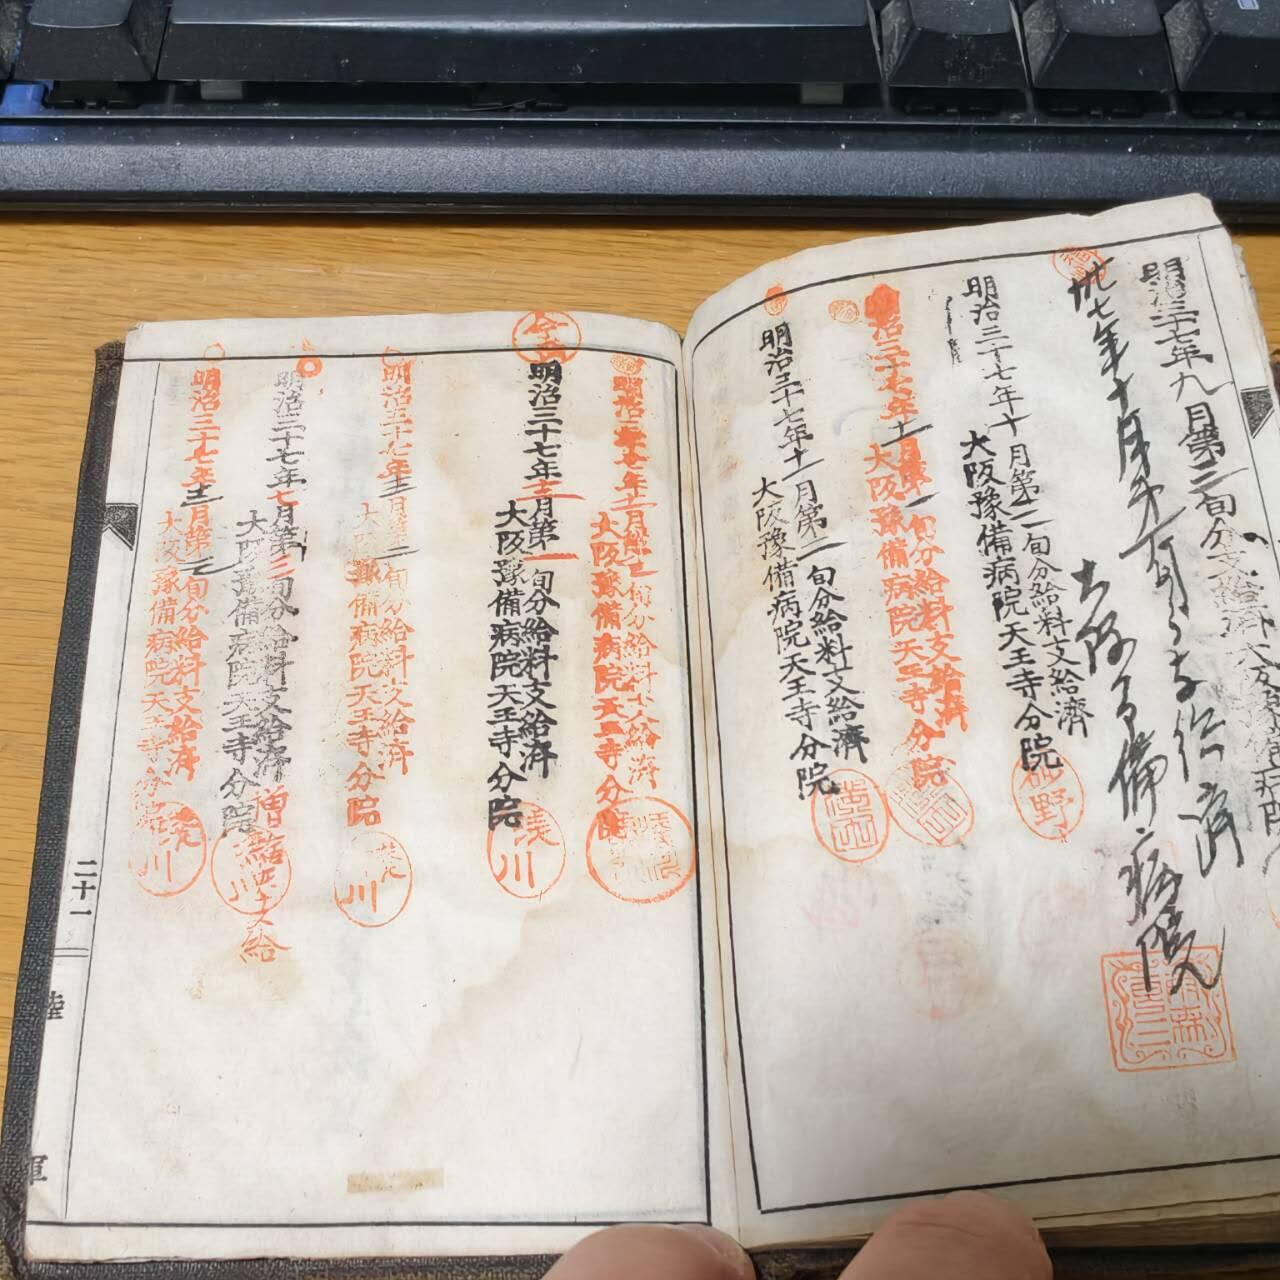 明治三十七年九月第三旬分支給済大阪豫備病院
卅七年十月第一旬分支給済
大阪予備病院
明治三十七年十月第二旬分給料支給済
大阪豫備病院天王寺分院
野
明治三十七年十一月第一旬分給料支給済
大阪豫備病院天王寺分院
明治三十七年十一月第二旬分給料支給済
大阪豫備病院天王寺分院
明治三十七年十二月旬分給料支給済
大阪豫備病院天王寺分院
明治三十七年十二月第一旬分給料支給済
大阪豫備病院天王寺分院
川
明治三十七年十二月第二旬分給料支給済
大阪豫備病院天王寺分院
川
明治三十七年七月第三旬分給料支給済
大阪豫備病院天王寺分院
川
支給
明治三十七年十二月第旬分給料支給済
大阪豫備病院天王寺分院
川
二十一
陸
軍